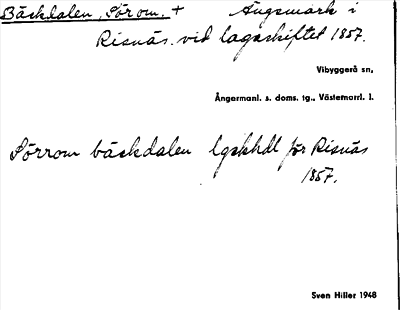 Bäckdalen, Sörom. + Ängsmark i
Risnäs. vid lagaskiftet 1857.
Vibyggerå sn,
Ångermanl. s. doms. tg., Västernorrl. l.
Sörrom bäckdalen lgskhdl för Risnäs
1857.
Sven Hiller 1948